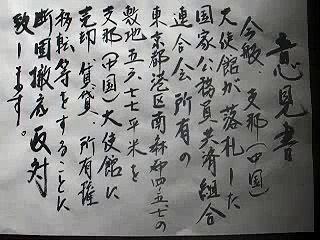 意見書
今般、支那(中国)
大使館が落札した
国家公務員共済組合
連合会所有の
東京都港区南麻布四、五、七の
敷地五六七七平米を
支那(中国)大使館に
売却、賃貸、所有権
移転等をすることに
断固撤底反対
致します。